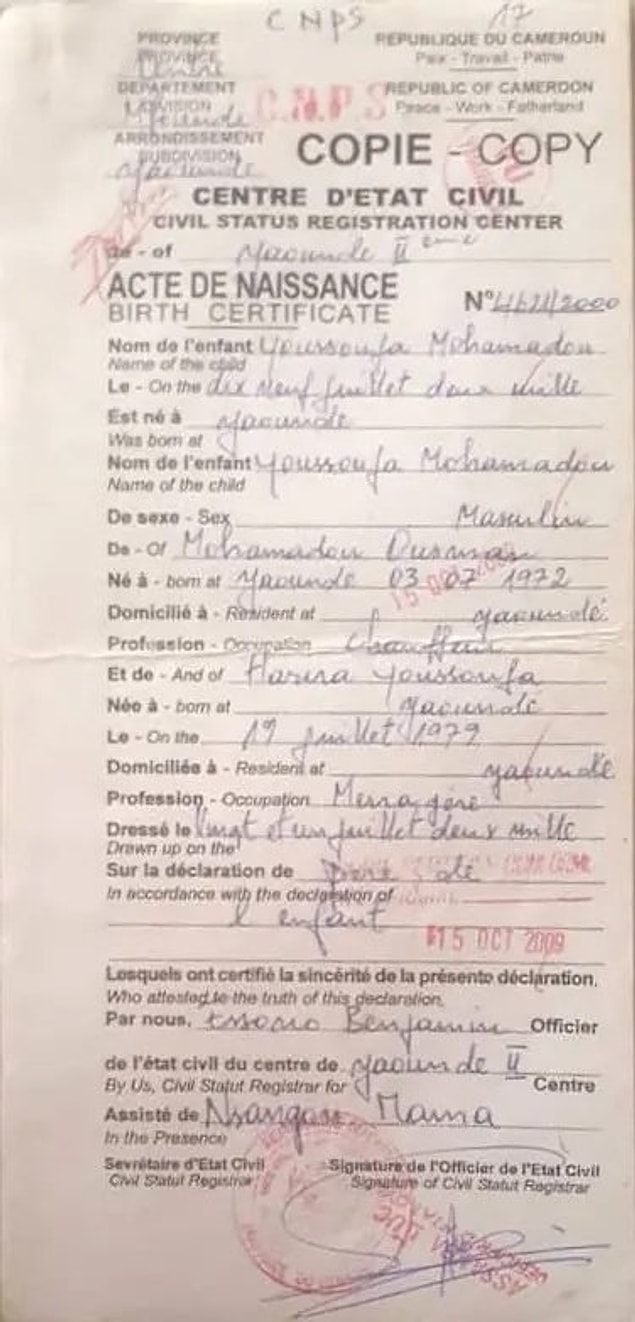 CNPS 17
PROVINCE REPUBLIQUE DU CAMEROUN
PROVINCE Paix - Travail - Patrie
Centre
DEPARTEMENT REPUBLIC OF CAMERDON
DIVISION C.N.P.S Peace - Work - Fatherland
ARRONDISSEMENT COPIE - COPY
SUBDIVISION
Yaounde
CENTRE D'ETAT CIVIL
CIVIL STATUS REGISTRATION CENTER
de - of Yaounde II eme
ACTE DE NAISSANCE N° /2000
BIRTH CERTIFICATE
Nom de l'enfant Youssoufa Mohamadou
Name of the child
Le - On the dix neuf juillet deux mille
Est né à Yaounde
Was born at
Nom de l'enfant Youssoufa Mohamadou
Name of the child
De sexe - Sex Masculin
De - Of Mohamadou Ousman
Né à - born at Yaounde 03 07 1972
15 OCT
Domicilié à - Resident at yaoundé
Profession - Occupation Chauffeur
Et de - And of Harira Youssoufa
Née à - born at Yaoundé
Le - On the 19 juillet 1979
Domiciliée à - Resident at yaoundé
Profession - Occupation Menagère
Dressé le Vingt et un juillet deux mille
Drawn up on the
Sur la déclaration de père de
In accordance with the declaration of
l'enfant
15 OCT 2009
Lesquels ont certifié la sincérité de la présente déclaration.
Who attested to the truth of this declaration.
Par nous, Essono Benjamin Officier
de l'état civil du centre de Yaounde II
By Us, Civil Statut Registrar for Centre
Assisté de Nsangou Mama
In the Presence
Secrétaire d'Etat Civil Signature de l'Officier de l'Etat Civil
Civil Statut Registrar Signature of Civil Statut Registrar